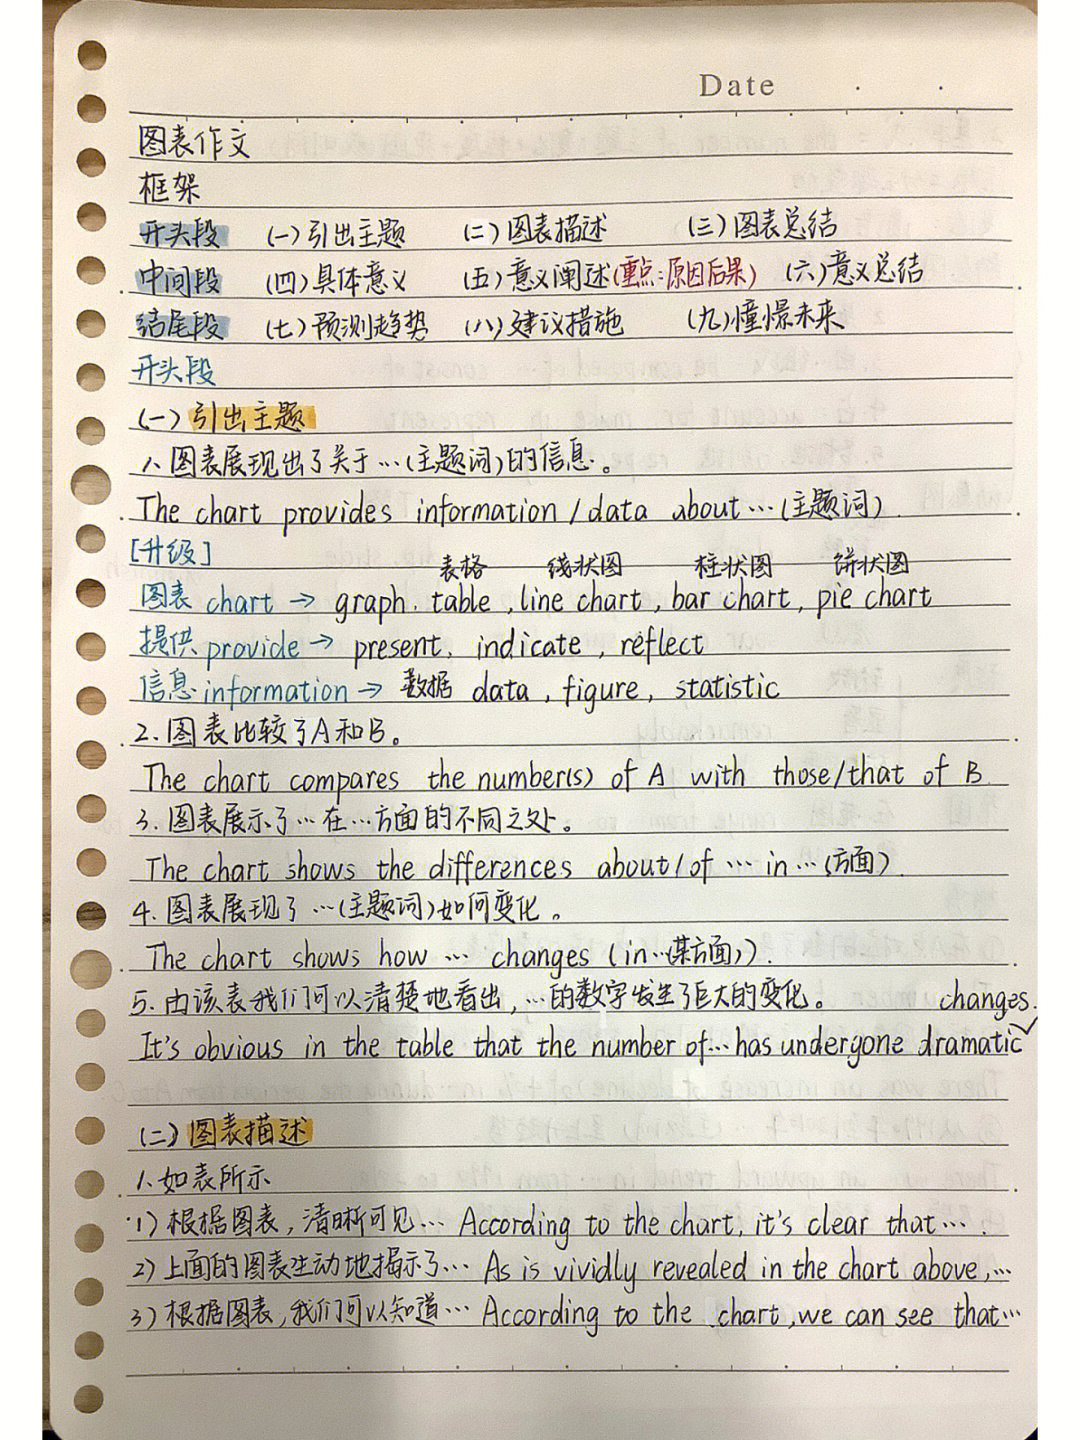 Date
图表作文
框架
开头段 (一)引出主题 (二)图表描述 (三)图表总结
中间段 (四)具体意义 (五)意义阐述(重点:原因后果) (六)意义总结
结尾段 (七)预测趋势 (八)建议措施 (九)憧憬未来
开头段
(一)引出主题
1、图表展现出了关于…(主题词)的信息。
The chart provides information/data about…(主题词).
[升级]
表格 线状图 柱状图 饼状图
图表 chart → graph. table, line chart, bar chart, pie chart
提供 provide → present, indicate, reflect
信息 information → 数据 data, figure, statistic
2. 图表比较了A和B。
The chart compares the number(s) of A with those/that of B
3. 图表展示了…在…方面的不同之处。
The chart shows the differences about/of … in …(方面).
4. 图表展现了…(主题词)如何变化。
The chart shows how … changes (in…(某方面)).
5. 由该表我们可以清楚地看出,…的数字发生了巨大的变化。
It's obvious in the table that the number of…has undergone dramatic changes.
(二)图表描述
1、如表所示
1) 根据图表,清晰可见… According to the chart, it's clear that….
2) 上面的图表生动地揭示了… As is vividly revealed in the chart above,…
3) 根据图表,我们可以知道… According to the chart, we can see that…